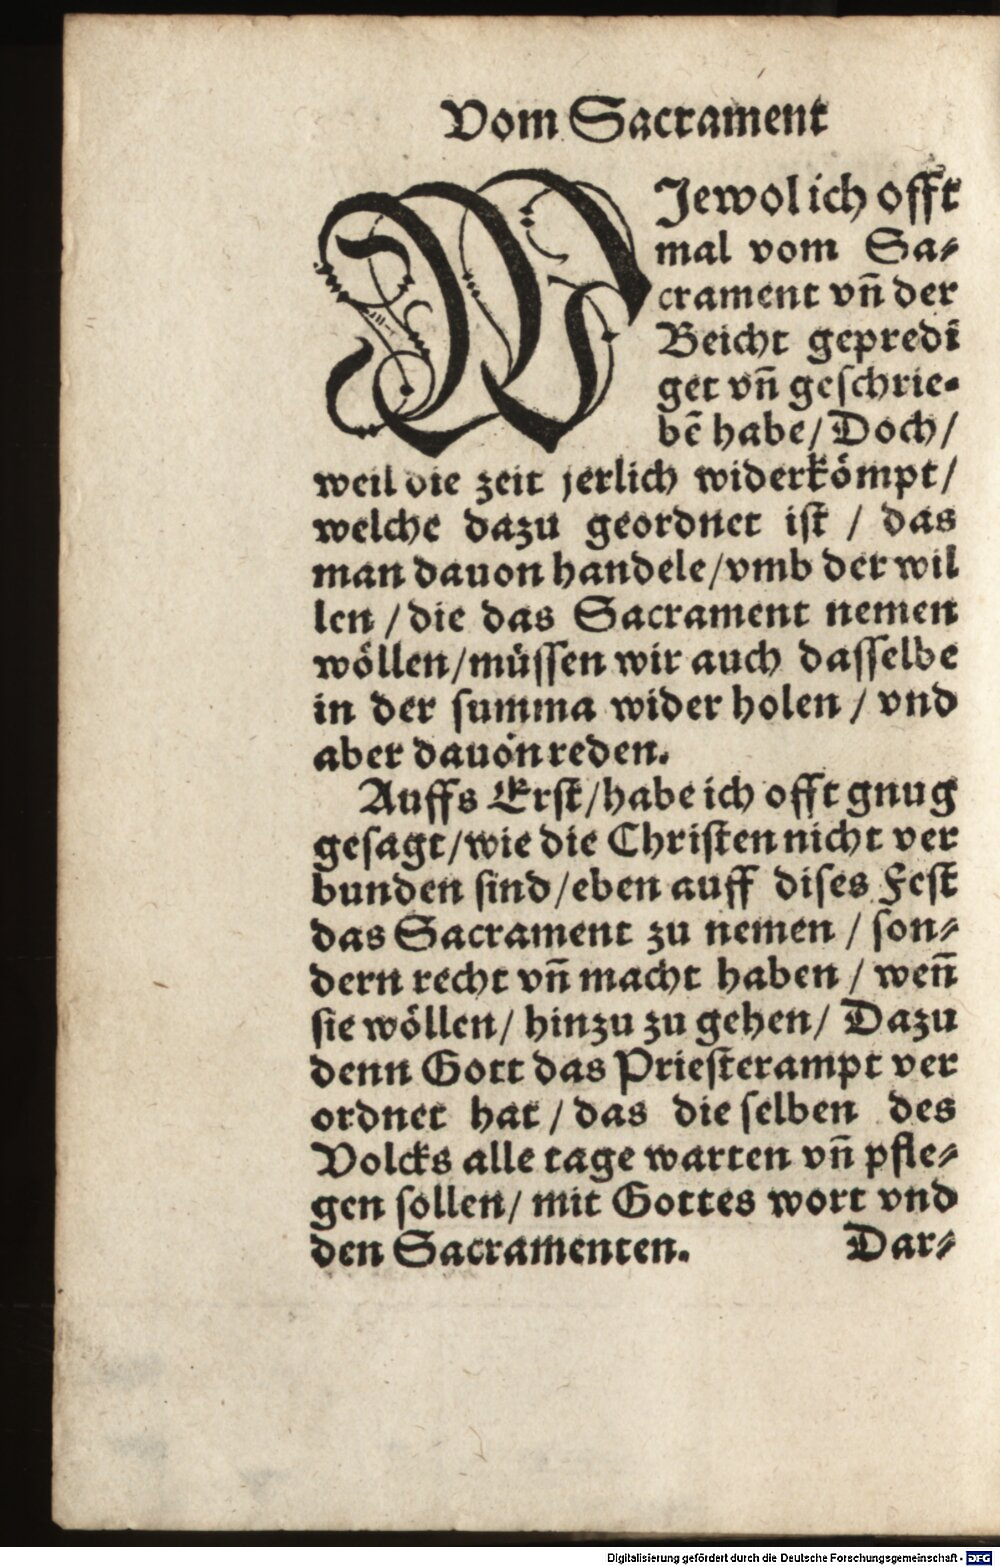 Vom Sacrament
WJewol ich offt
mal vom Sa⸗
crament vñ der
Beicht gepredi
get vñ geschrie⸗
bē habe/ Doch/
weil die zeit jerlich widerkömpt/
welche dazu geordnet ist / das
man dauon handele/vmb der wil
len /die das Sacrament nemen
wöllen/müssen wir auch dasselbe
in der summa wider holen / vnd
aber dauon reden.
Auffs Erst/habe ich offt gnug
gesagt/wie die Christen nicht ver
bunden sind/eben auff dises Fest
das Sacrament zu nemen / son⸗
dern recht vñ macht haben / weñ
sie wöllen/ hinzu zu gehen/ Dazu
denn Gott das Priesterampt ver
ordnet hat / das die selben des
Volcks alle tage warten vñ pfle⸗
gen sollen/ mit Gottes wort vnd
den Sacramenten. Dar⸗
Digitalisierung gefördert durch die Deutsche Forschungsgemeinschaft - DFG